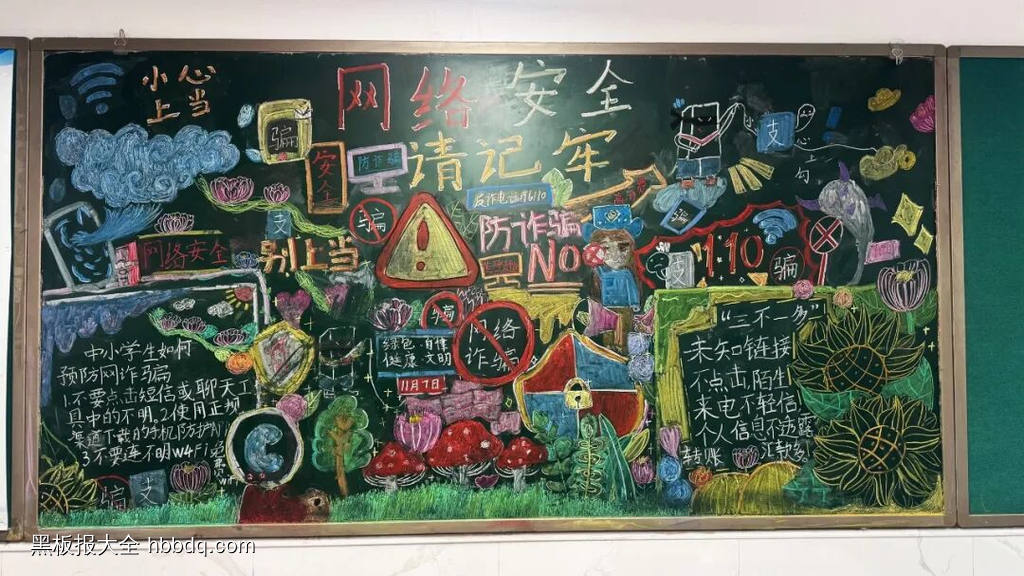 小心
上当
网络安全
请记牢
骗
安全
支
骗
网络安全
别上当
防诈骗
NO
110
支
骗
支
网络
诈骗
骗
绿色 自律
健康 文明
11月7日
中小学生如何
预防网诈骗
1.不要点击短信或聊天工
具中的不明。2使用正规
渠道下载的手机防护
3不要连不明WiFi
"三不一多"
未知链接
不点击,陌生
来电不轻信
个人信息不透露
转账汇款多
骗
支
黑板报大全 hbbdq.com